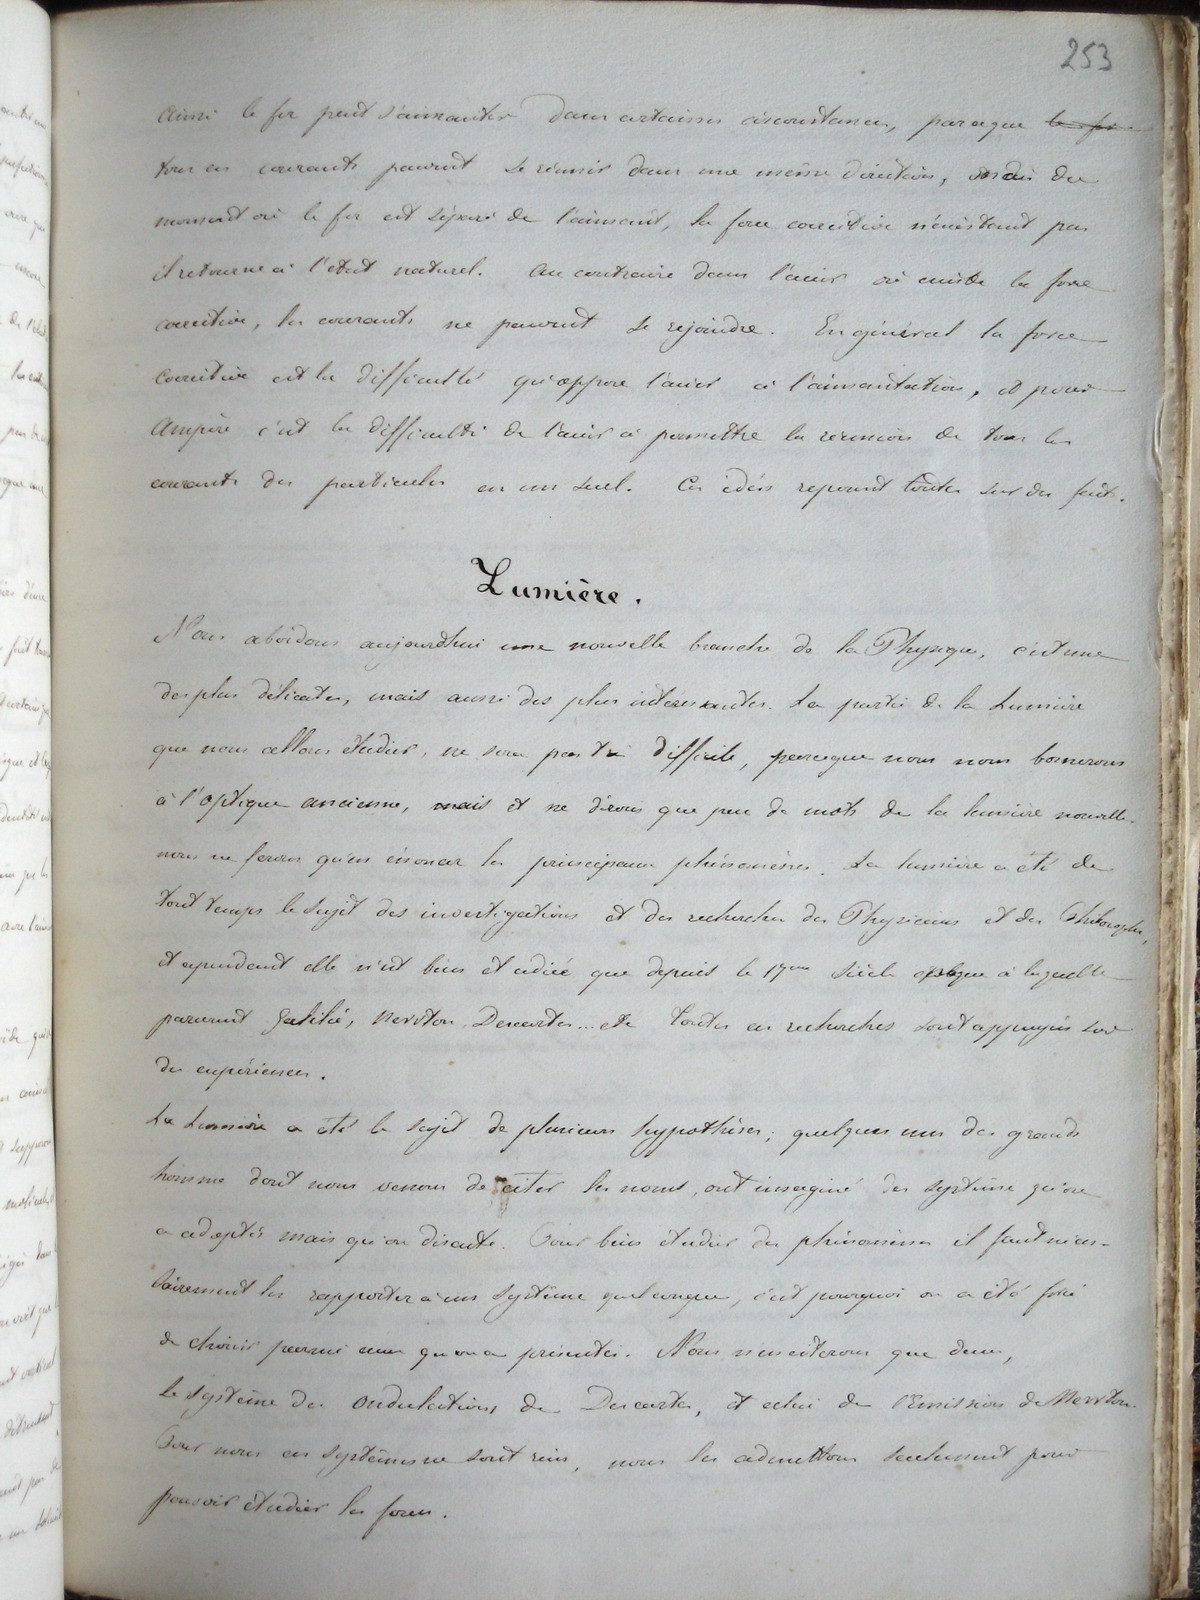 253
ainsi le fer peut s'aimanter dans certaines circonstances, parceque le fer
tous ces courants peuvent se réunir dans une même direction, mais du
moment où le fer est séparé de l'aimant, la force coercitive n'existant pas
il retourne à l'état naturel. Au contraire dans l'acier où existe la force
coercitive, les courants ne peuvent se rejoindre. En général la force
coercitive est la difficulté qu'oppose l'acier à l'aimantation, et pour
Ampère c'est la difficulté de l'acier à permettre la réunion de tous les
courants des particules en un seul. Ces idées reposent toutes sur des faits.
Lumière.
Nous abordons aujourdhui une nouvelle branche de la Physique, c'est une
des plus délicates, mais aussi des plus intéressantes. La partie de la Lumière
que nous allons étudier, ne sera pas très difficile, parceque nous nous bornerons
à l'optique ancienne, mais et ne dirons que peu de mots de la lumière nouvelle
nous ne ferons qu'en énoncer les principaux phénomènes. La lumière a été de
tout temps le sujet des investigations et des recherches des Physiciens et des Philosophes,
et cependant elle n'est bien étudiée que depuis le 17me siècle époque à laquelle
parurent Galilée, Newton, Descartes... etc Toutes ces recherches sont appuyées sur
des expériences.
La Lumière a été le sujet de plusieurs hypothèses; quelques uns des grands
homme dont nous venons de citer les noms, ont imaginé des système qu'on
a adoptés mais qu'on discute. Pour bien étudier des phénomènes il faut néces-
sairement les rapporter à un système quelconque, c'est pourquoi on a été forcé
de choisir parmi ceux qu'on a présentés. Nous n'en citerons que deux,
le système des ondulations de Descartes, et celui de l'Emission de Newton.
Pour nous ces systèmes ne sont rien, nous les admettons seulement pour
pouvoir étudier les forces.